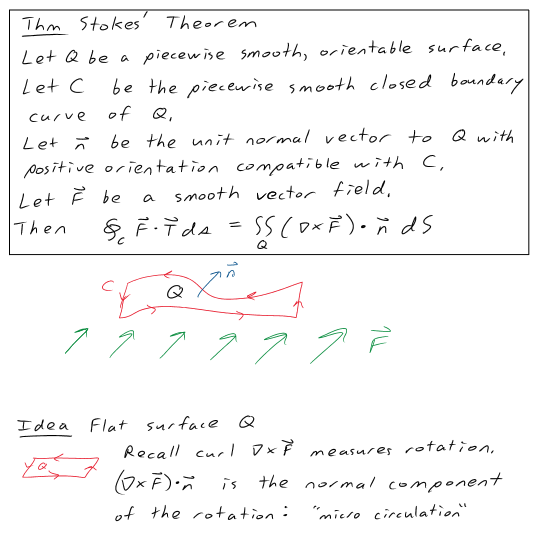 Thm Stokes' Theorem
Let Q be a piecewise smooth, orientable surface.
Let C be the piecewise smooth closed boundary
curve of Q.
Let n⃗ be the unit normal vector to Q with
positive orientation compatible with C.
Let F⃗ be a smooth vector field.
Then ∮_C F⃗ · T⃗ ds = ∬_Q (∇×F⃗) · n⃗ dS
n⃗
C
Q
F⃗
Idea Flat surface Q
Recall curl ∇×F⃗ measures rotation.
Q
(∇×F⃗)·n⃗ is the normal component
of the rotation: "micro circulation"